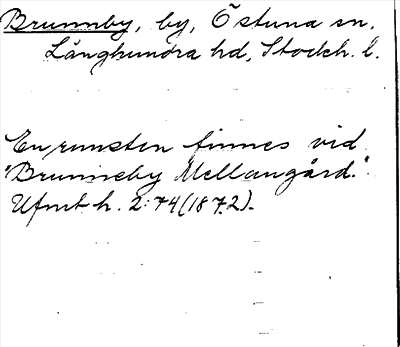 Brunnby, by, Östuna sn.
Långhundra hd, Stockh. l.
En runsten finnes vid
"Brunneby Mellangård."
Ufmt h. 2:74 (1872).